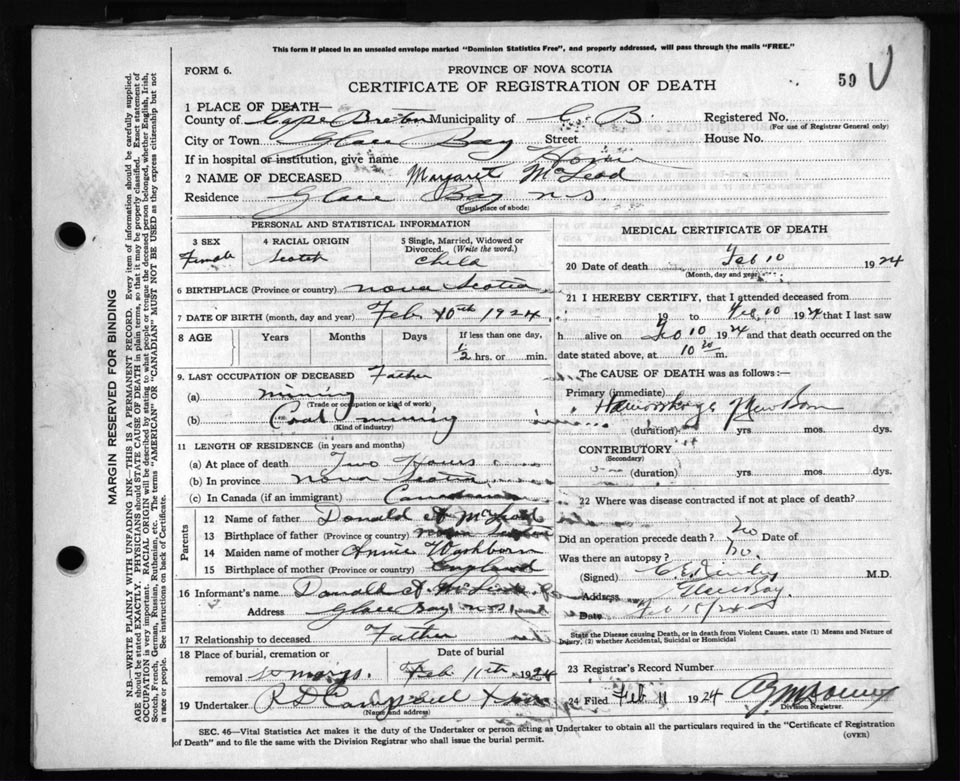 This form if placed in an unsealed envelope marked "Dominion Statistics Free", and properly addressed, will pass through the mails "FREE."
FORM 6.
PROVINCE OF NOVA SCOTIA
CERTIFICATE OF REGISTRATION OF DEATH
59
1 PLACE OF DEATH—
County of Cape Breton Municipality of C. B. Registered No.
(For use of Registrar General only)
City or Town Glace Bay Street House No.
If in hospital or institution, give name Home
2 NAME OF DECEASED Margaret McLeod
Residence Glace Bay N.S.
(Usual place of abode)
PERSONAL AND STATISTICAL INFORMATION
3 SEX 4 RACIAL ORIGIN 5 Single, Married, Widowed or Divorced. (Write the word.)
Female Scotch Child
6 BIRTHPLACE (Province or country) Nova Scotia
7 DATE OF BIRTH (month, day and year) Feb 10th 1924
8 AGE Years Months Days If less than one day,
hrs. or min.
9. LAST OCCUPATION OF DECEASED Father
(a) mining
(Trade or occupation or kind of work)
(b) Coal mining
(Kind of industry)
11 LENGTH OF RESIDENCE (in years and months)
(a) At place of death Two Hours
(b) In province Nova Scotia
(c) In Canada (if an immigrant) Canadian
Parents
12 Name of father Donald A McLeod
13 Birthplace of father (Province or country) Nova Scotia
14 Maiden name of mother Annie Washborn
15 Birthplace of mother (Province or country) England
16 Informant's name Donald A McLeod
Address Glace Bay N.S.
17 Relationship to deceased Father
18 Place of burial, cremation or removal Date of burial
Feb 11th 1924
19 Undertaker R D Campbell
(Name and address)
MEDICAL CERTIFICATE OF DEATH
20 Date of death Feb 10 1924
(Month, day and year)
21 I HEREBY CERTIFY, that I attended deceased from
19 to Feb 10 1924 that I last saw
h alive on 10 1924 and that death occurred on
date stated above, at 10 m.
The CAUSE OF DEATH was as follows:—
Primary (immediate)
Haemorrhage New Born
(duration) yrs. mos. dys.
CONTRIBUTORY
(Secondary)
(duration) yrs. mos. dys.
22 Where was disease contracted if not at place of death?
Did an operation precede death? No Date of
Was there an autopsy? No.
(Signed) M.D.
Address Glace Bay.
Date
State the Disease causing Death, or in death from Violent Causes, state (1) Means and Nature of
Injury, (2) whether Accidental, Suicidal or Homicidal
23 Registrar's Record Number
24 Filed Feb 11 1924
Division Registrar.
SEC. 46—Vital Statistics Act makes it the duty of the Undertaker or person acting as Undertaker to obtain all the particulars required in the "Certificate of Registration
of Death" and to file the same with the Division Registrar who shall issue the burial permit.
(OVER)
MARGIN RESERVED FOR BINDING
N.B.—WRITE PLAINLY WITH UNFADING INK—THIS IS A PERMANENT RECORD. Every item of information should be carefully supplied.
AGE should be stated EXACTLY. PHYSICIANS should STATE CAUSE OF DEATH in plain terms, so that it may be properly classified. Exact statement of
OCCUPATION is very important. RACIAL ORIGIN will be described by stating to what people or tongue the deceased person belonged, whether English, Irish,
Scotch, French, German, Russian, Ruthenian, etc. The terms "AMERICAN" or "CANADIAN" MUST NOT BE USED as they express citizenship but not
a race or people. See instructions on back of Certificate.